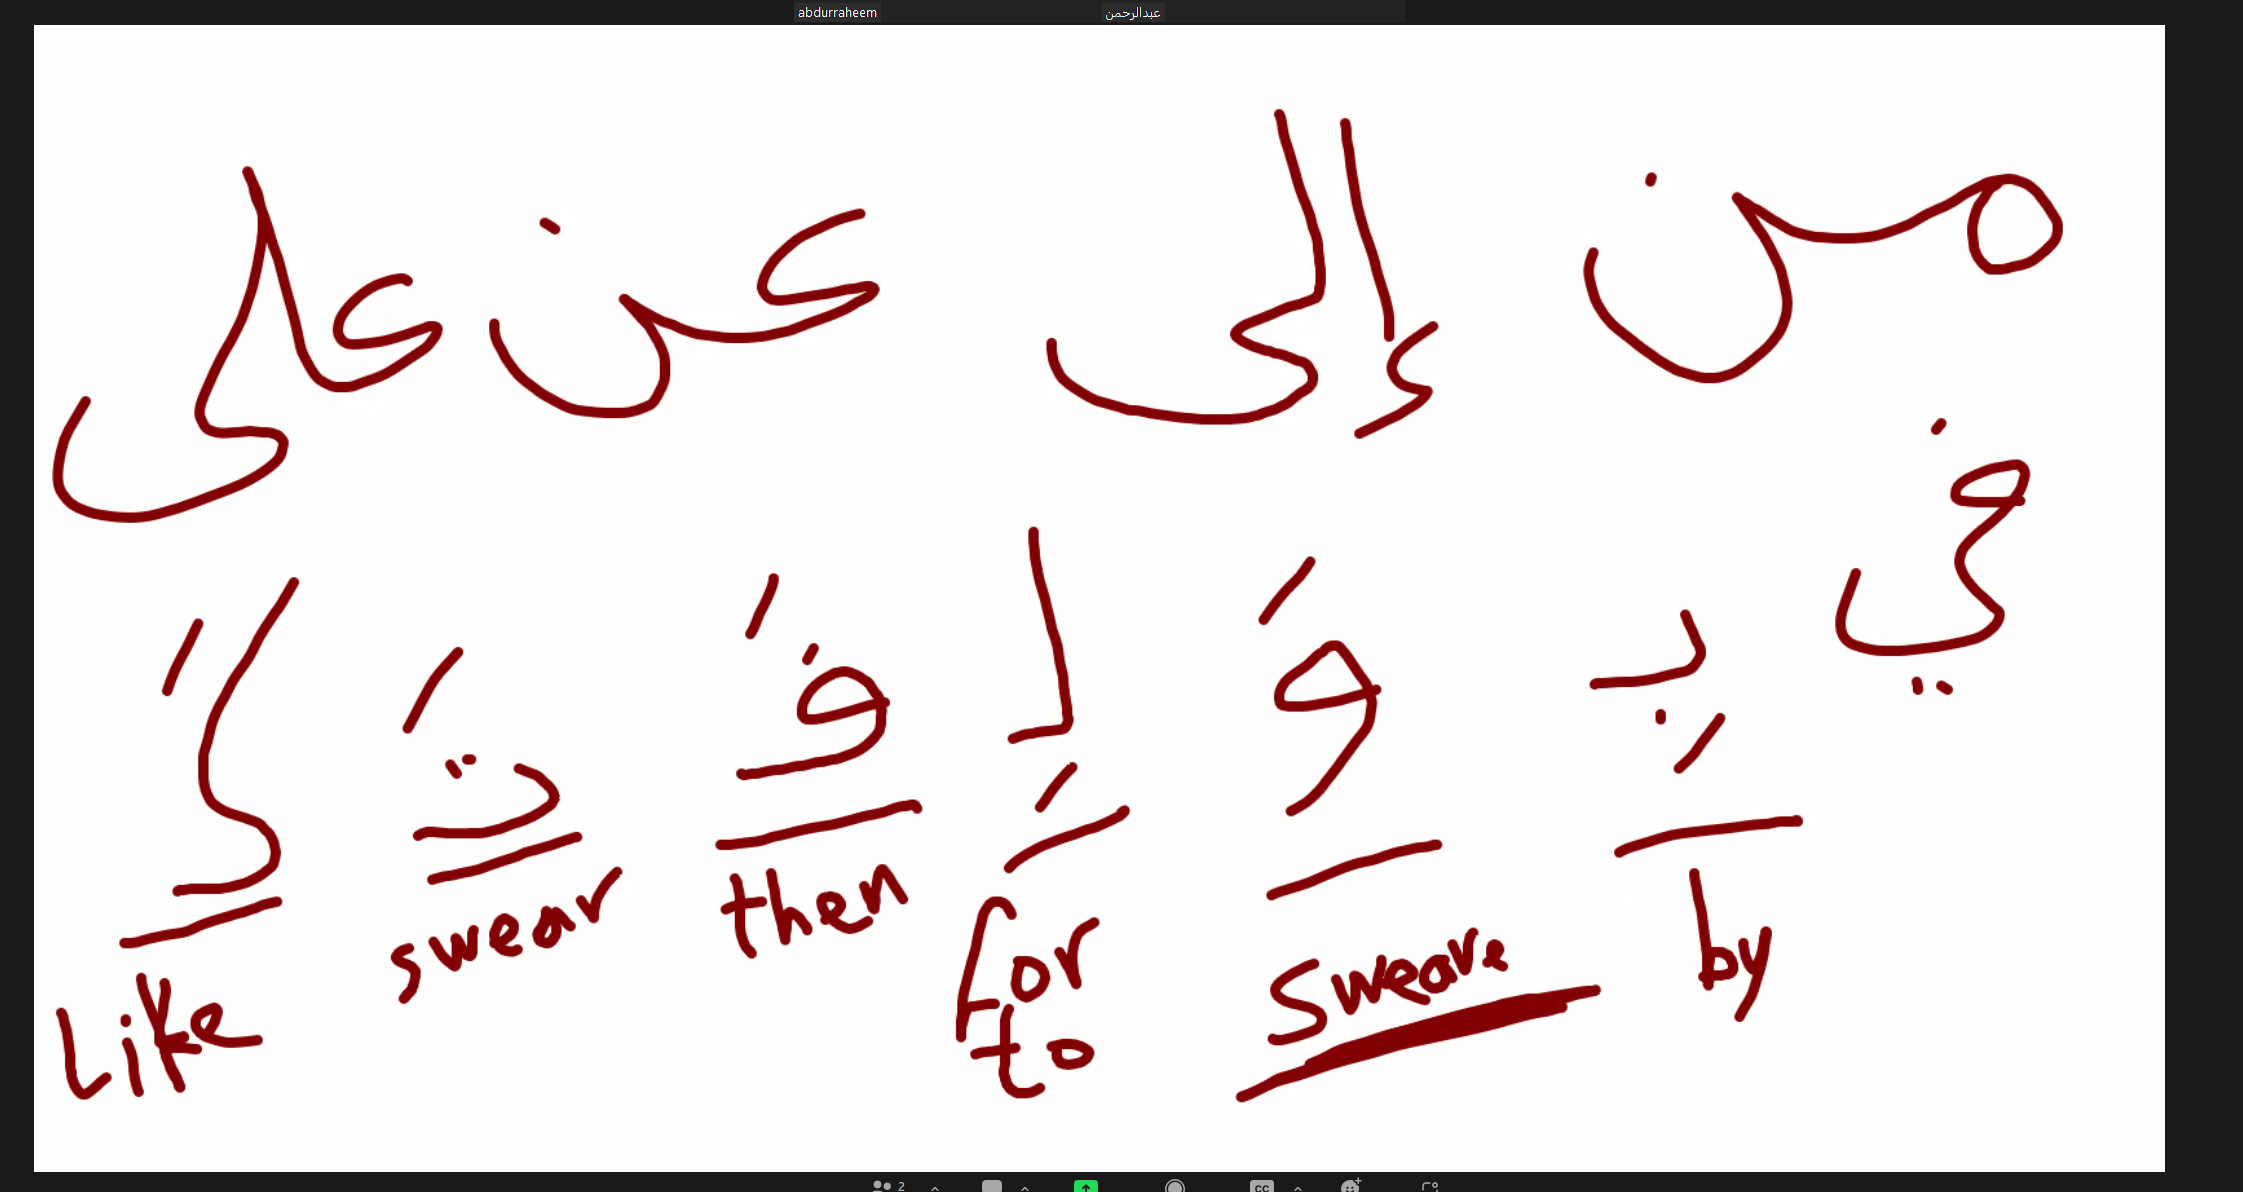 abdurraheem عبدالرحمن
من إلى عن على
في
بِ وَ لِ فَ تَ كَ
by sweare for to then swear Like
2
CC